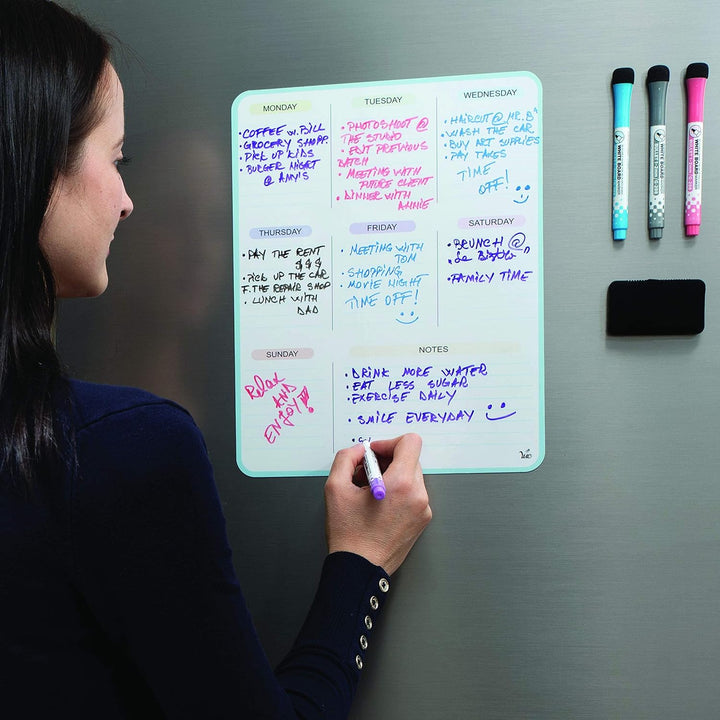 MONDAY
• COFFEE W. BILL
• GROCERY SHOPP.
• PICK UP KIDS
• BURGER NIGHT
@ AMY'S
TUESDAY
• PHOTOSHOOT @
THE STUDIO
• EDIT PREVIOUS
BATCH
• MEETING WITH
FUTURE CLIENT
• DINNER WITH
ANNIE
WEDNESDAY
• HAIRCUT @ MR. B"
• WASH THE CAR
• BUY ART SUPPLIES
• PAY TAXES
TIME
OFF!
THURSDAY
• PAY THE RENT
$$$
• PICK UP THE CAR
F. THE REPAIR SHOP
• LUNCH WITH
DAD
FRIDAY
• MEETING WITH
TOM
• SHOPPING
• MOVIE NIGHT
TIME OFF!
SATURDAY
• BRUNCH @
• FAMILY TIME
SUNDAY
Relax
AND
ENJOY!
NOTES
• DRINK MORE WATER
• EAT LESS SUGAR
• EXERCISE DAILY
• SMILE EVERYDAY
WHITE BOARD
WHITE BOARD
WHITE BOARD